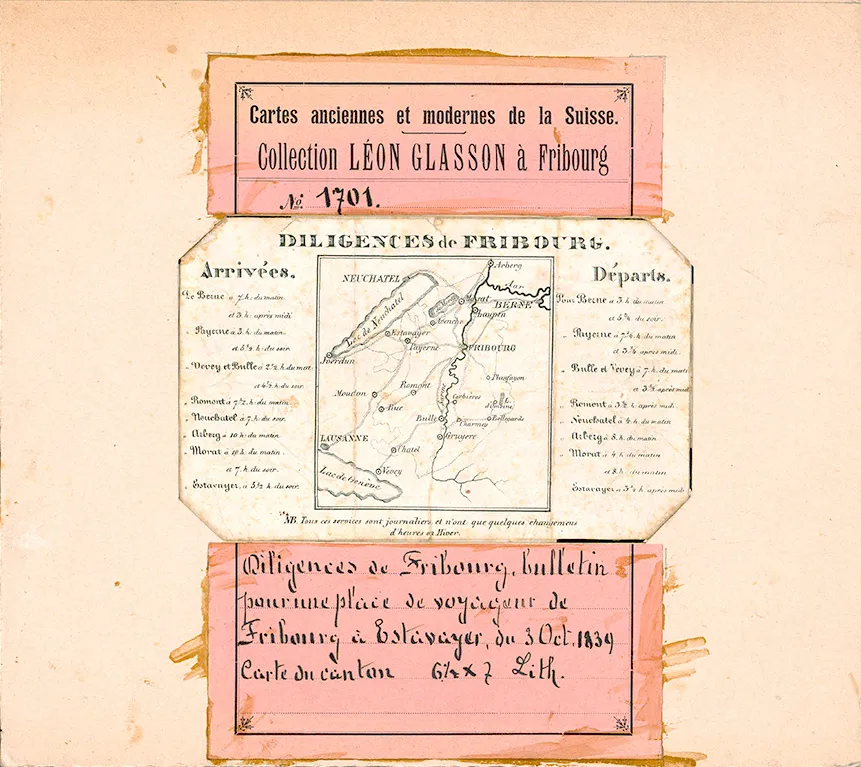 Cartes anciennes et modernes de la Suisse.
Collection LÉON GLASSON à Fribourg
No. 1701.
DILIGENCES de FRIBOURG.
Arrivées.
De Berne à 7. h. du matin.
et 3 h. après midi.
„ Payerne à 3. h. du matin.
et 5½ h. du soir.
„ Vevey et Bulle à 2½ h. du mat.
et 4½ h. du soir.
„ Romont à 7½ h. du matin.
„ Neuchatel à 7. h. du soir.
„ Arberg à 10. h. du matin.
„ Morat à 10. h. du matin.
et 7. h. du soir.
„ Estavayer, à 5½ h. du soir.
NEUCHATEL
Lac de Neuchatel
Arberg
Aar
BERNE
Morat
Laupen
Avenche
Estavayer
Payerne
FRIBOURG
Yverdun
Planfayon
Moudon
Romont
Sarine
Corbières
Rue
Bulle
Charmey
Bellegarde
Gruyere
LAUSANNE
Chatel
Vevey
Lac de Genève
Départs.
Pour Berne à 3. h. du matin
et 5¾ du soir.
„ Payerne à 7½ h. du matin
et 3¼ après midi.
„ Bulle et Vevey à 7. h. du mati
et 3½ après midi
„ Romont à 3½ h. après mid.
„ Neuchatel à 4. h. du matin
„ Arberg à 5. h. du matin.
„ Morat à 4. h. du matin
et 8 h. du matin
Estavayer à 3½ h. après mid.
NB. Tous ces services sont journaliers, et n'ont que quelques changemens
d'heures en Hiver.
Diligences de Fribourg, bulletin
pour une place de voyageur de
Fribourg à Estavayer, du 3 Oct. 1839
Carte du canton 6½ x 7 Lith.